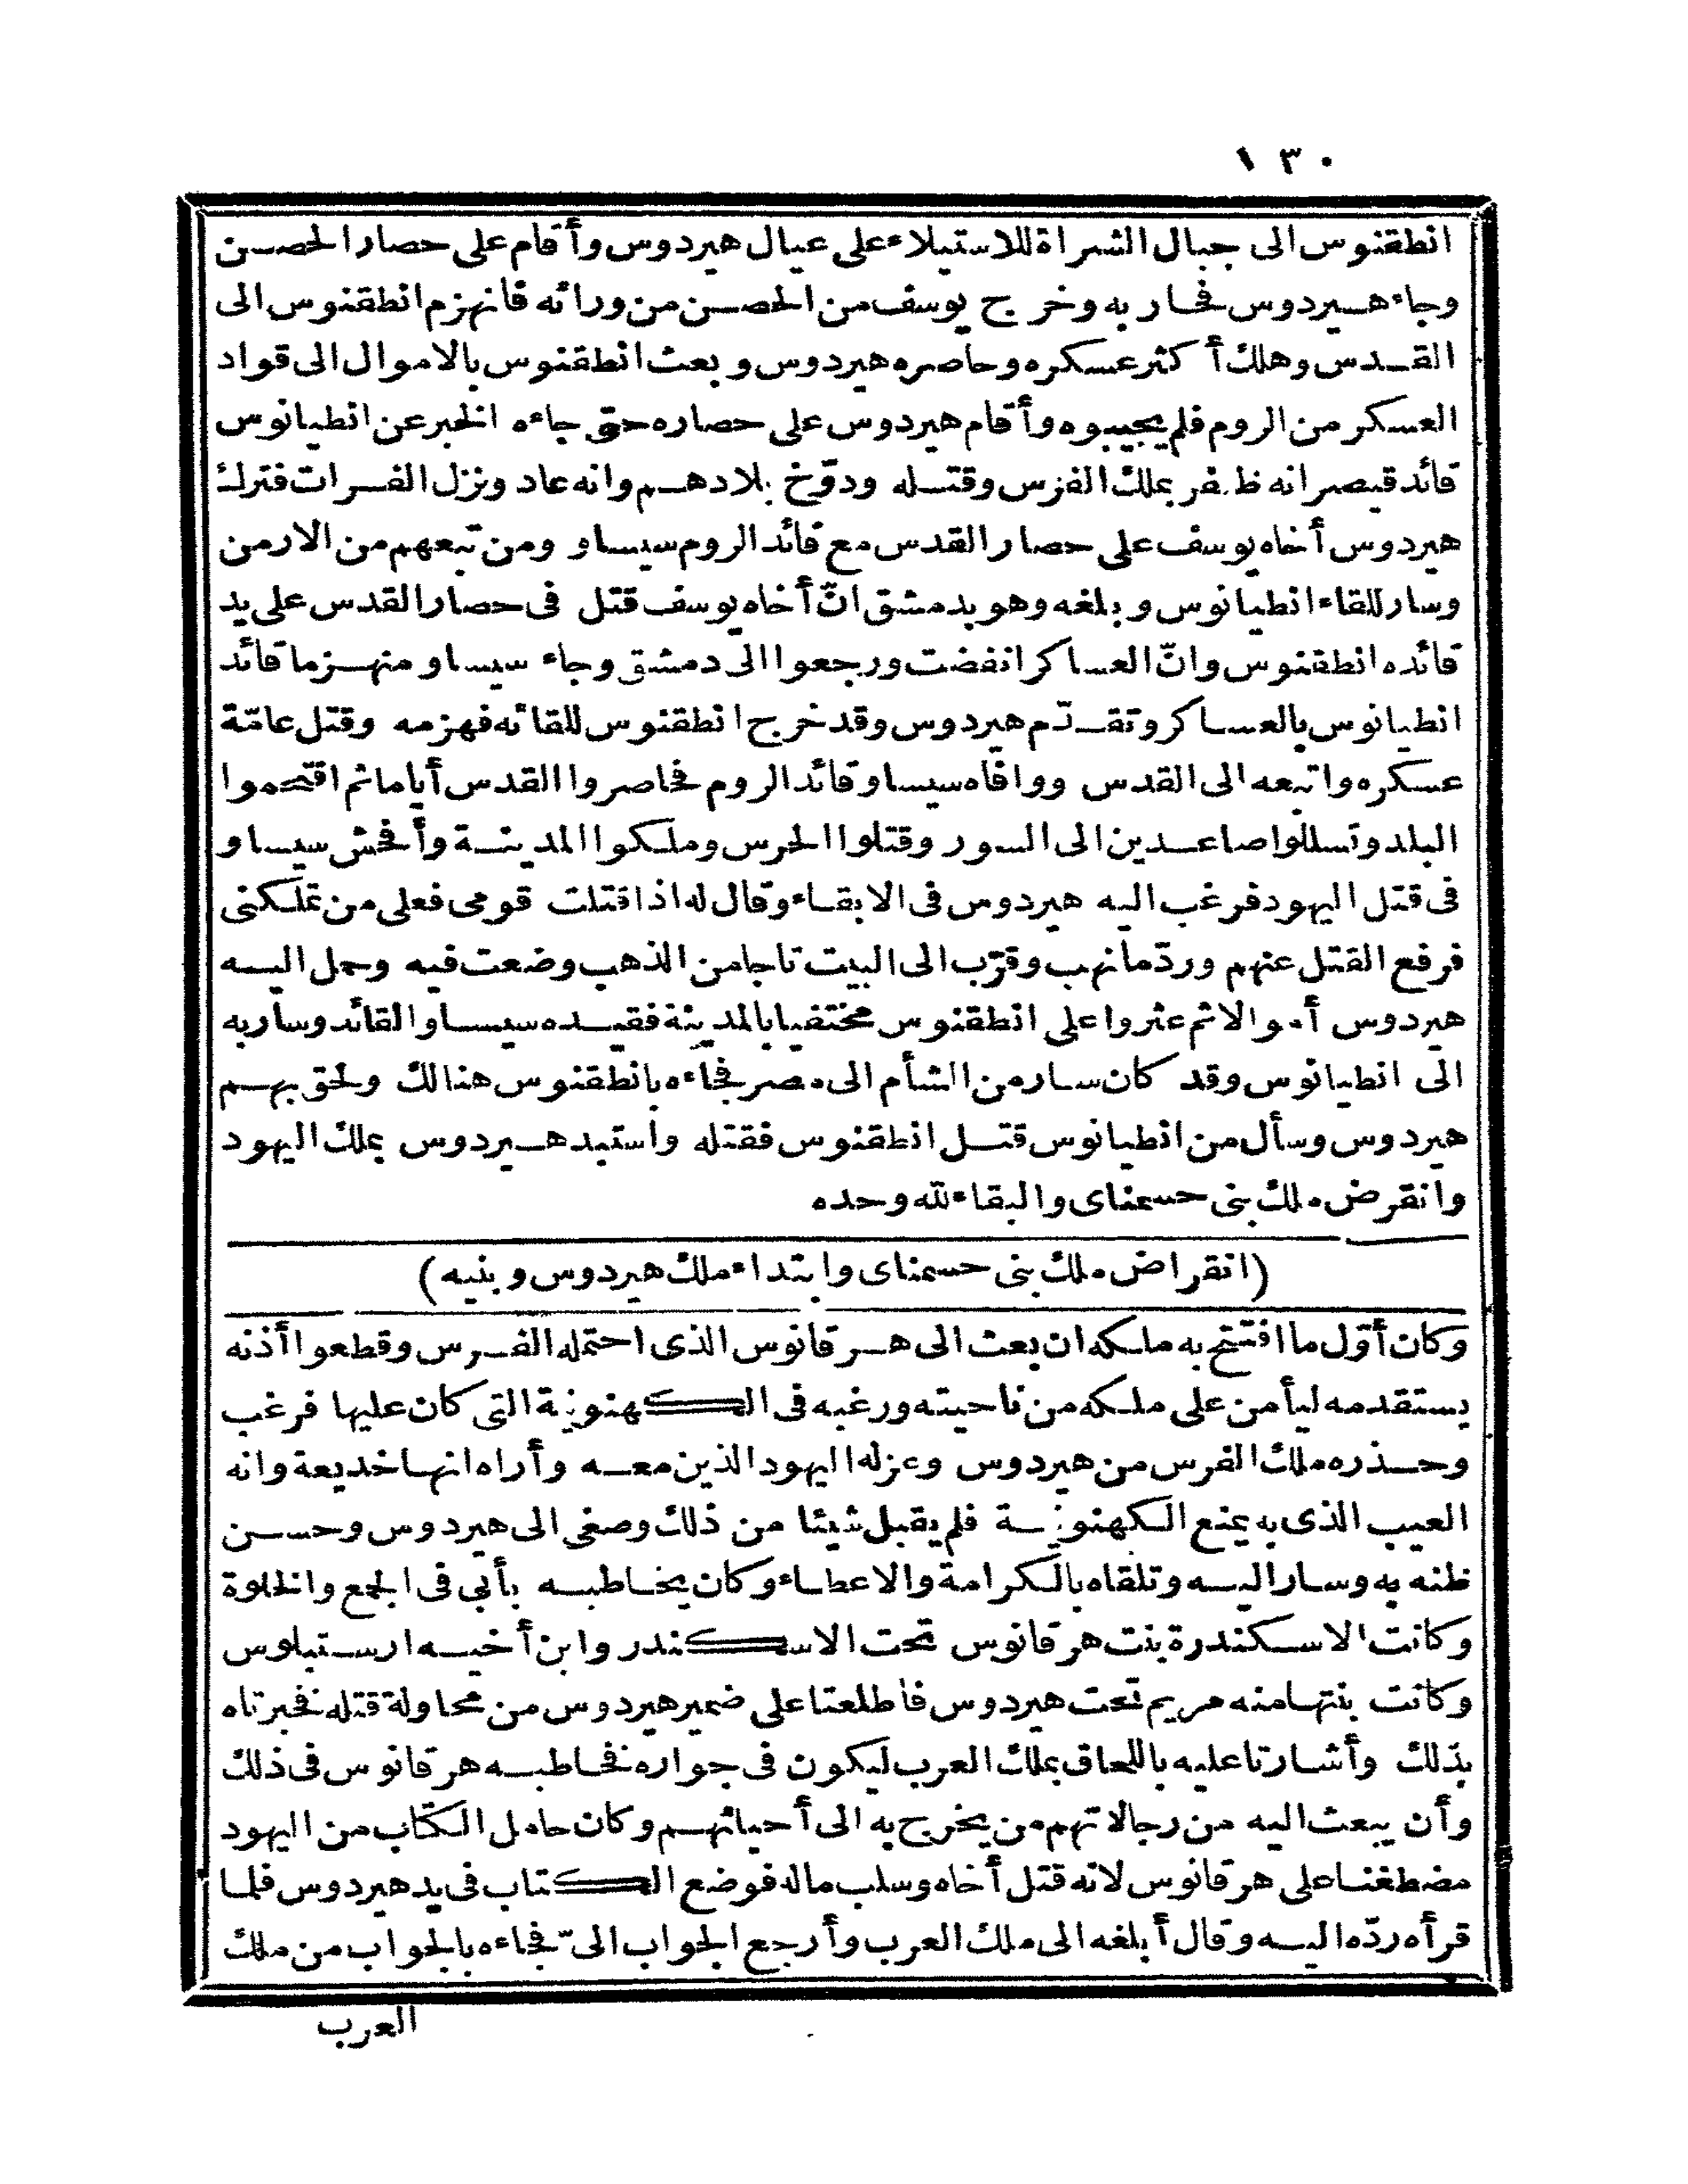 ١٣٠
انطقنوس الى جبال الشراة للاستيلاء على عيال هيردوس وأقام على حصار الحصن
وجاء هيردوس فحاربه وخرج يوسف من الحصن من ورائه فانهزم انطقنوس الى
القدس وهلك أكثر عسكره وحاصره هيردوس وبعث انطقنوس بالاموال الى قواد
العسكر من الروم فلم يجيبوه وأقام هيردوس على حصاره حتى جاءه الخبر عن انطيانوس
قائد قيصر انه ظفر بملك الفرس وقتله ودوّخ بلادهم وانه عاد ونزل الفرات فترك
هيردوس أخاه يوسف على حصار القدس مع قائد الروم سيساو ومن تبعهم من الارمن
وسار للقاء انطيانوس وبلغه وهو بدمشق انّ أخاه يوسف قتل فى حصار القدس على يد
قائده انطقنوس وانّ العساكر انفضت ورجعوا الى دمشق وجاء سيساو منهزما قائد
انطيانوس بالعساكر وتقدّم هيردوس وقد خرج انطقنوس للقائه فهزمه وقتل عامّة
عسكره واتبعه الى القدس ووافاه سيساو قائد الروم فحاصروا القدس أياما ثم اقتحموا
البلد وتسللوا صاعدين الى السور وقتلوا الحرس وملكوا المدينة وأفحش سيساو
فى قتل اليهود فرغب اليه هيردوس فى الابقاء وقال له اذا قتلت قومى فعلى من تملكنى
فرفع القتل عنهم وردّ ما نهب وقرّب الى البيت تاجا من الذهب وضعت فيه وحمل اليه
هيردوس أموالا ثم عثروا على انطقنوس مختفيا بالمدينة فقيده سيساو القائد وسار به
الى انطيانوس وقد كان سار من الشأم الى مصر فجاءه بانطقنوس هنالك ولحق بهم
هيردوس وسأل من انطيانوس قتل انطقنوس فقتله واستبد هيردوس بملك اليهود
وانقرض ملك بنى حسمناى والبقاء لله وحده
(انقراض ملك بنى حسمناى وابتداء ملك هيردوس وبنيه)
وكان أوّل ما افتتح به ملكه ان بعث الى هرقانوس الذى احتمله الفرس وقطعوا أذنه
يستقدمه ليأمن على ملكه من ناحيته ورغبه فى الكهنونية التى كان عليها فرغب
وحذره ملك الفرس من هيردوس وعزله اليهود الذين معه وأراه انها خديعة وانه
العيب الذى به يمنع الكهنونية فلم يقبل شيئا من ذلك وصغى الى هيردوس وحسن
ظنه به وسار اليه وتلقاه بالكرامة والاعطاء وكان يخاطبه بأبى فى الجمع والخلوة
وكانت الاسكندرة بنت هرقانوس تحت الاسكندر وابن أخيه ارستبلوس
وكانت بنتها منه مريم تحت هيردوس فاطلعتا على ضمير هيردوس من محاولة قتله فخبرتاه
بذلك وأشارتا عليه باللحاق بملك العرب ليكون فى جواره فخاطبه هرقانوس فى ذلك
وأن يبعث اليه من رجالاتهم من يخرج به الى أحيائهم وكان حامل الكتاب من اليهود
مضطغنا على هرقانوس لانه قتل أخاه وسلب ماله فوضع الكتاب فى يد هيردوس فلما
قرأه ردّه اليه وقال أبلغه الى ملك العرب وأرجع الجواب الىّ فجاءه بالجواب من ملك
العرب